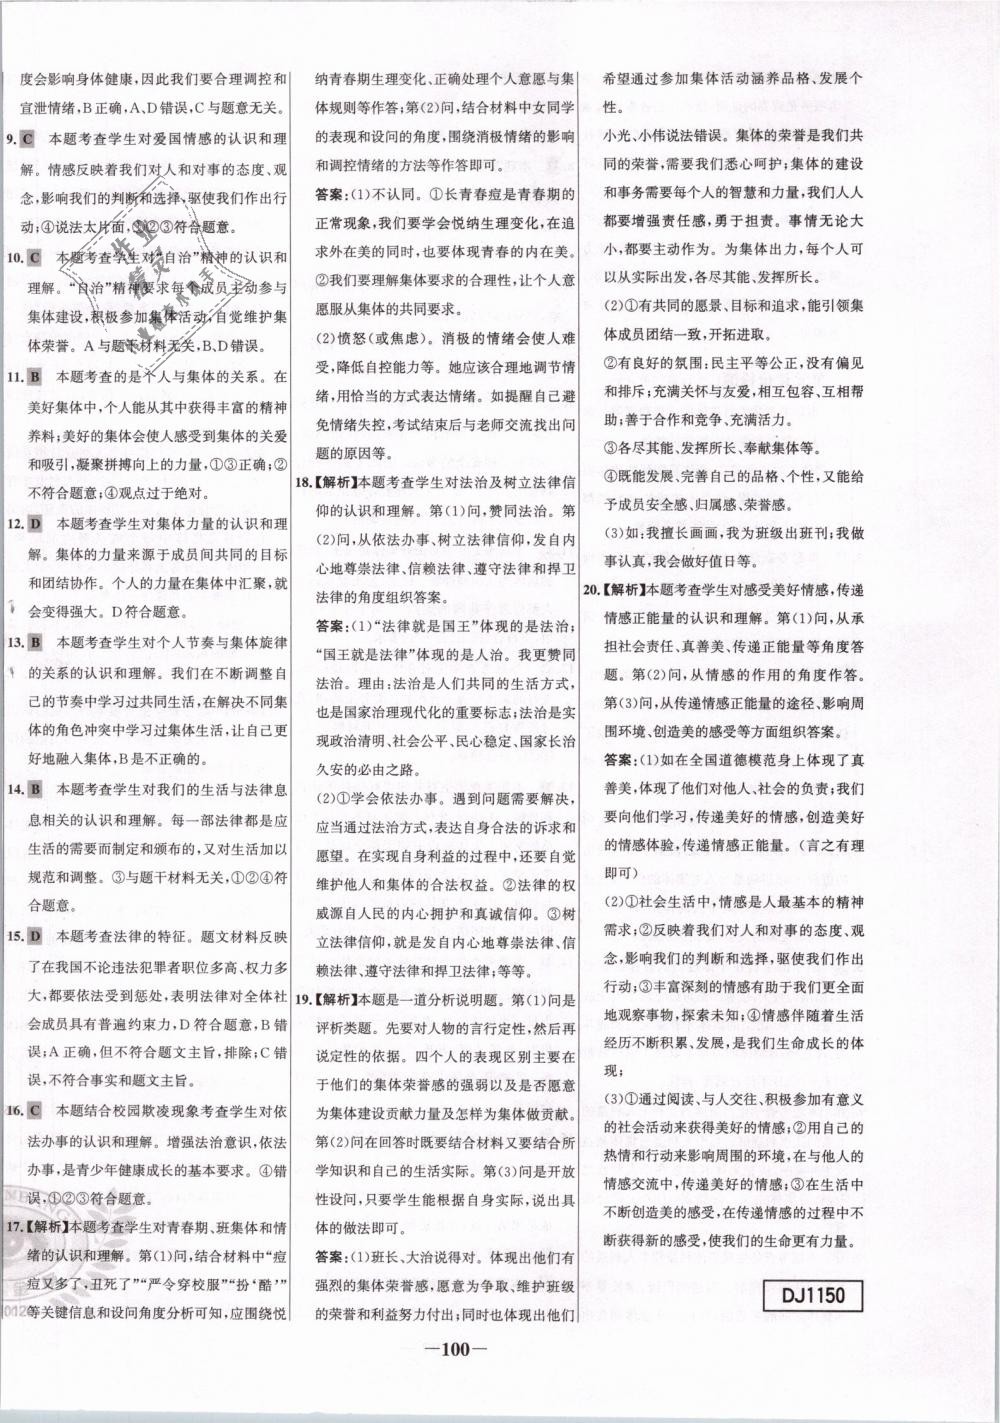 度会影响身体健康,因此我们要合理调控和
宣泄情绪,B正确,A、D错误,C与题意无关。
9. C 本题考查学生对爱国情感的认识和理
解。情感反映着我们对人和对事的态度、观
念,影响我们的判断和选择,驱使我们作出行
动;④说法太片面,①②③符合题意。
10. C 本题考查学生对“自治”精神的认识和
理解。“自治”精神要求每个成员主动参与
集体建设,积极参加集体活动,自觉维护集
体荣誉。A与题干材料无关,B、D错误。
11. B 本题考查的是个人与集体的关系。在
美好集体中,个人能从其中获得丰富的精神
养料;美好的集体会使人感受到集体的关爱
和吸引,凝聚拼搏向上的力量,①③正确;②
不符合题意;④观点过于绝对。
12. D 本题考查学生对集体力量的认识和理
解。集体的力量来源于成员间共同的目标
和团结协作。个人的力量在集体中汇聚,就
会变得强大。D符合题意。
13. B 本题考查学生对个人节奏与集体旋律
的关系的认识和理解。我们在不断调整自
己的节奏中学习过共同生活,在解决不同集
体的角色冲突中学习过集体生活,让自己更
好地融入集体,B是不正确的。
14. B 本题考查学生对我们的生活与法律息
息相关的认识和理解。每一部法律都是应
生活的需要而制定和颁布的,又对生活加以
规范和调整。③与题干材料无关,①②④符
合题意。
15. D 本题考查法律的特征。题文材料反映
了在我国不论违法犯罪者职位多高、权力多
大,都要依法受到惩处,表明法律对全体社
会成员具有普遍约束力,D符合题意,B错
误;A正确,但不符合题文主旨,排除;C错
误,不符合事实和题文主旨。
16. C 本题结合校园欺凌现象考查学生对依
法办事的认识和理解。增强法治意识,依法
办事,是青少年健康成长的基本要求。④错
误,①②③符合题意。
17.【解析】本题考查学生对青春期、班集体和情
绪的认识和理解。第(1)问,结合材料中“痘
痘又多了,丑死了”“严令穿校服”“扮‘酷’”
等关键信息和设问角度分析可知,应围绕悦
纳青春期生理变化、正确处理个人意愿与集
体规则等作答;第(2)问,结合材料中女同学
的表现和设问的角度,围绕消极情绪的影响
和调控情绪的方法等作答即可。
答案:(1)不认同。①长青春痘是青春期的
正常现象,我们要学会悦纳生理变化,在追
求外在美的同时,也要体现青春的内在美。
②我们要理解集体要求的合理性,让个人意
愿服从集体的共同要求。
(2)愤怒(或焦虑)。消极的情绪会使人难
受,降低自控能力等。她应该合理地调节情
绪,用恰当的方式表达情绪。如提醒自己避
免情绪失控,考试结束后与老师交流找出问
题的原因等。
18.【解析】本题考查学生对法治及树立法律信
仰的认识和理解。第(1)问,赞同法治。第
(2)问,从依法办事、树立法律信仰,发自内
心地尊崇法律、信赖法律、遵守法律和捍卫
法律的角度组织答案。
答案:(1)“法律就是国王”体现的是法治;
“国王就是法律”体现的是人治。我更赞同
法治。理由:法治是人们共同的生活方式,
也是国家治理现代化的重要标志;法治是实
现政治清明、社会公平、民心稳定、国家长治
久安的必由之路。
(2)①学会依法办事。遇到问题需要解决,
应当通过法治方式,表达自身合法的诉求和
愿望。在实现自身利益的过程中,还要自觉
维护他人和集体的合法权益。②法律的权
威源自人民的内心拥护和真诚信仰。③树
立法律信仰,就是发自内心地尊崇法律、信
赖法律、遵守法律和捍卫法律;等等。
19.【解析】本题是一道分析说明题。第(1)问是
评析类题。先要对人物的言行定性,然后再
说定性的依据。四个人的表现区别主要在
于他们的集体荣誉感的强弱以及是否愿意
为集体建设贡献力量及怎样为集体做贡献。
第(2)问在回答时既要结合材料又要结合所
学知识和自己的生活实际。第(3)问是开放
性设问,只要学生能根据自身实际,说出具
体的做法即可。
答案:(1)班长、大治说得对。体现出他们有
强烈的集体荣誉感,愿意为争取、维护班级
的荣誉和利益努力付出;同时也体现出他们
希望通过参加集体活动涵养品格、发展个
性。
小光、小伟说法错误。集体的荣誉是我们共
同的荣誉,需要我们悉心呵护;集体的建设
和事务需要每个人的智慧和力量,我们人人
都要增强责任感,勇于担责。事情无论大
小,都要主动作为。为集体出力,每个人可
以从实际出发,各尽其能、发挥所长。
(2)①有共同的愿景、目标和追求,能引领集
体成员团结一致,开拓进取。
②有良好的氛围:民主平等公正,没有偏见
和排斥;充满关怀与友爱,相互包容、互相帮
助;善于合作和竞争、充满活力。
③各尽其能、发挥所长、奉献集体等。
④既能发展、完善自己的品格、个性,又能给
予成员安全感、归属感、荣誉感。
(3)如:我擅长画画,我为班级出班刊;我做
事认真,我会做好值日等。
20.【解析】本题考查学生对感受美好情感,传递
情感正能量的认识和理解。第(1)问,从承
担社会责任、真善美、传递正能量等角度答
题。第(2)问,从情感的作用的角度作答。
第(3)问,从传递情感正能量的途径、影响周
围环境、创造美的感受等方面组织答案。
答案:(1)如在全国道德模范身上体现了真
善美,体现了他们对他人、社会的负责;我们
要向他们学习,传递美好的情感,创造美好
的情感体验,传递情感正能量。(言之有理
即可)
(2)①社会生活中,情感是人最基本的精神
需求;②反映着我们对人和对事的态度、观
念,影响我们的判断和选择,驱使我们作出
行动;③丰富深刻的情感有助于我们更全面
地观察事物,探索未知;④情感伴随着生活
经历不断积累、发展,是我们生命成长的体
现;
(3)①通过阅读、与人交往、积极参加有意义
的社会活动来获得美好的情感;②用自己的
热情和行动来影响周围的环境,在与他人的
情感交流中,传递情感正能量;③在生活中
不断创造美的感受,在传递情感的过程中不
断获得新的感受,使我们的生命更有力量。
DJ1150
—100—